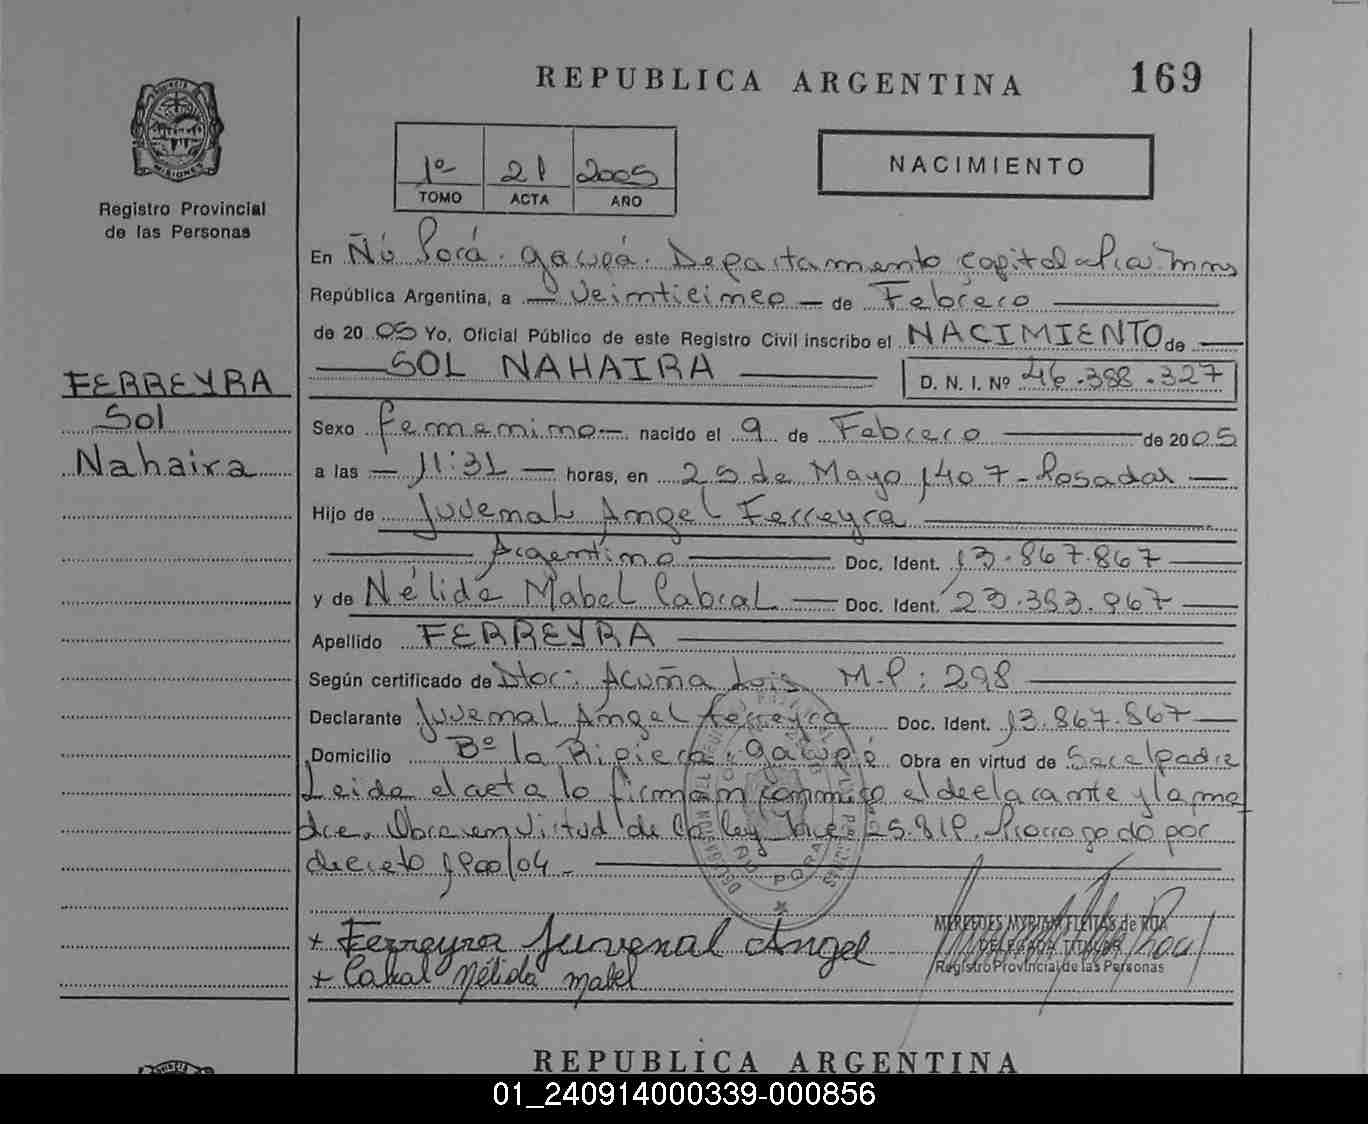 REPUBLICA ARGENTINA 169
PROVINCIA
MISIONES
Registro Provincial
de las Personas
1º 21 2005
TOMO ACTA AÑO
NACIMIENTO
En Ñú Porá. Garupá. Departamento Capital Pcia. Mnes
República Argentina, a veinticinco de Febrero
de 2005 Yo, Oficial Público de este Registro Civil inscribo el NACIMIENTO de
SOL NAHAIRA D. N. I. Nº 46.388.327
FERREYRA
Sol
Nahaira
Sexo femenino nacido el 9 de Febrero de 2005
a las 11:31 horas, en 25 de Mayo 1407 - Posadas
Hijo de Juvenal Angel Ferreyra
Argentino Doc. Ident. 13.867.867
y de Nélida Mabel Cabral Doc. Ident. 23.383.967
Apellido FERREYRA
Según certificado de Doc: Acuña Luis M.P: 298
Declarante Juvenal Angel Ferreyra Doc. Ident. 13.867.867
Domicilio Bº la Ribiera. Garupá Obra en virtud de Ser el padre
Leida el acta lo firman conmigo el declarante y la ma
dre. Obra en virtud de la ley Nro 25.819. Prorrogado por
decreto 1900/04.-
+ Ferreyra Juvenal Angel
+ Cabral Nélida Mabel
MERCEDES MYRIAM FLEITAS de ROA
DELEGADA TITULAR
Registro Provincial de las Personas
ÑU PORA
REPUBLICA ARGENTINA
01_240914000339-000856